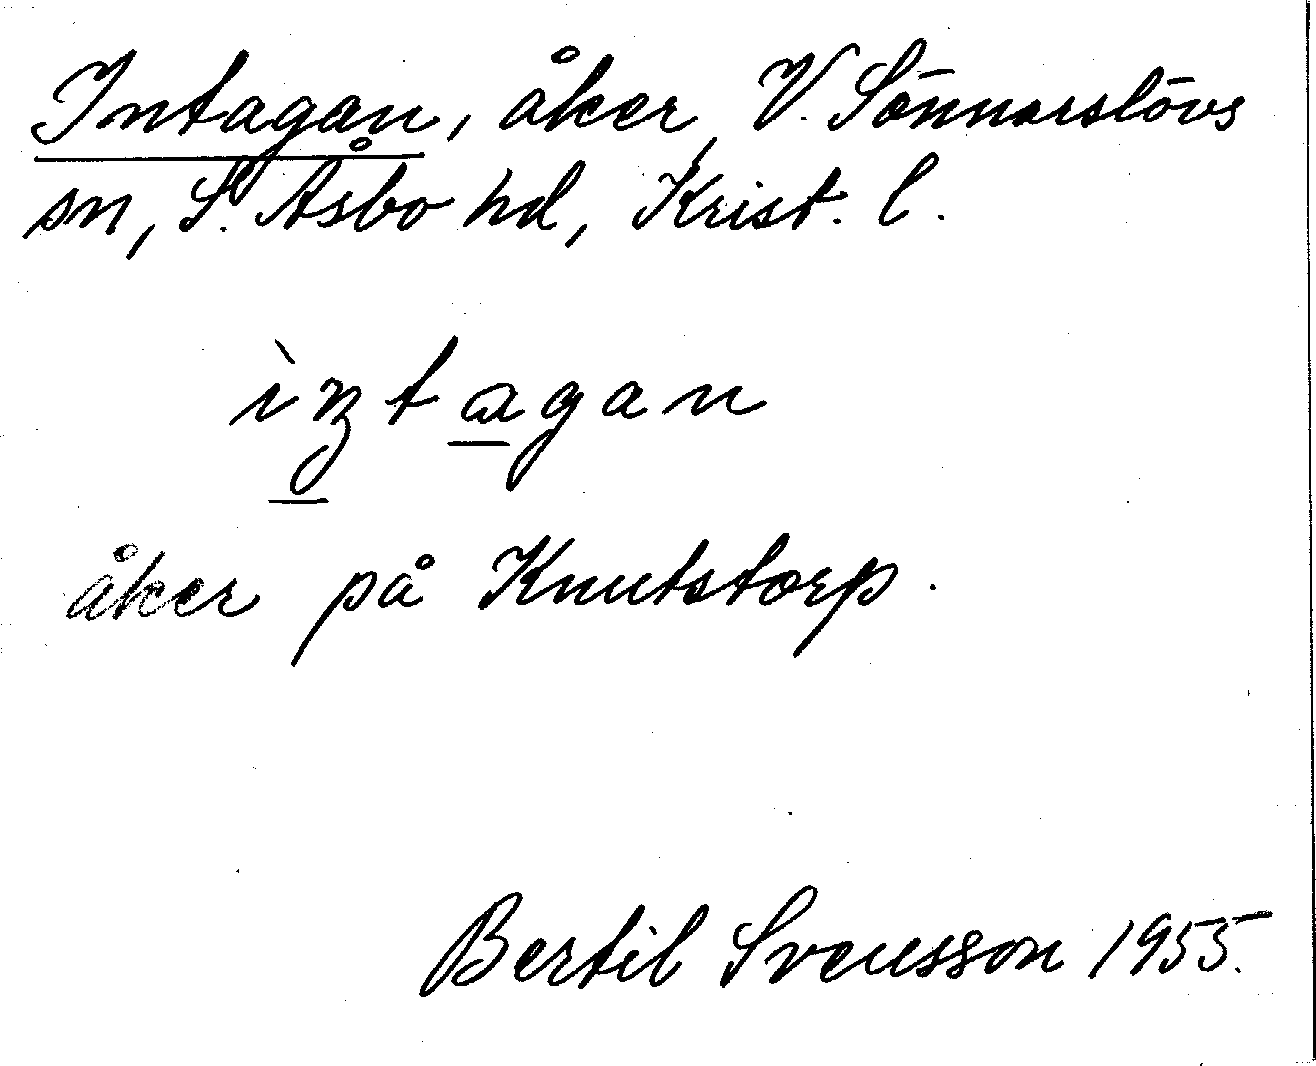 Intagan, åker, V. Sönnarslövs
sn, S. Åsbo hd, Krist. l.
åker på Knutstorp.
Bertil Svensson 1955.